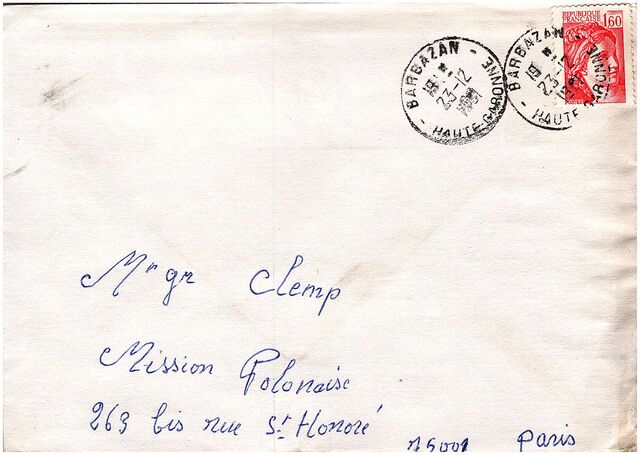 REPUBLIQUE
FRANCAISE
1,60
BARBAZAN
19 H *
23-12
1981
HAUTE-GARONNE
BARBAZAN
19 H *
23-12
1981
HAUTE-GARONNE
Mr gr Clemp
Mission Polonaise
263 bis rue St Honoré
75001 Paris